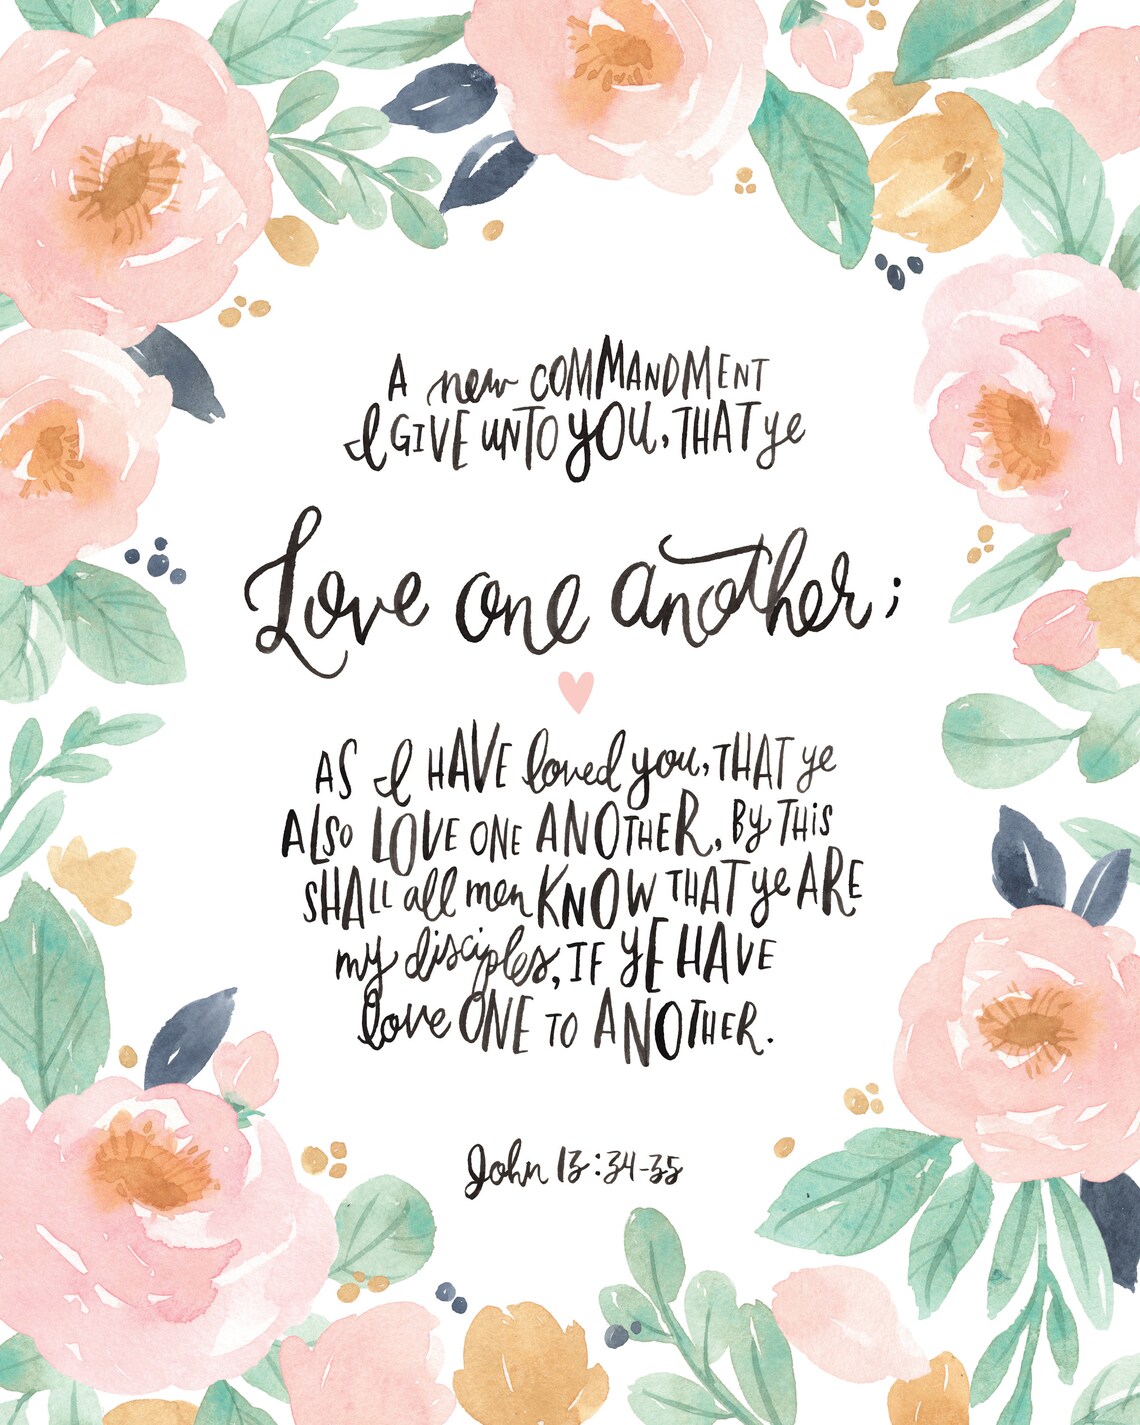 A new COMMANDMENT
I GIVE UNTO YOU, THAT ye
Love one another;
AS I HAVE loved you, THAT ye
ALSO LOVE ONE ANOTHER. By THiS
SHALL all men KNOW THAT ye ARE
my disciples, IF YE HAVE
love ONE TO ANOTHER.
John 13:34-35